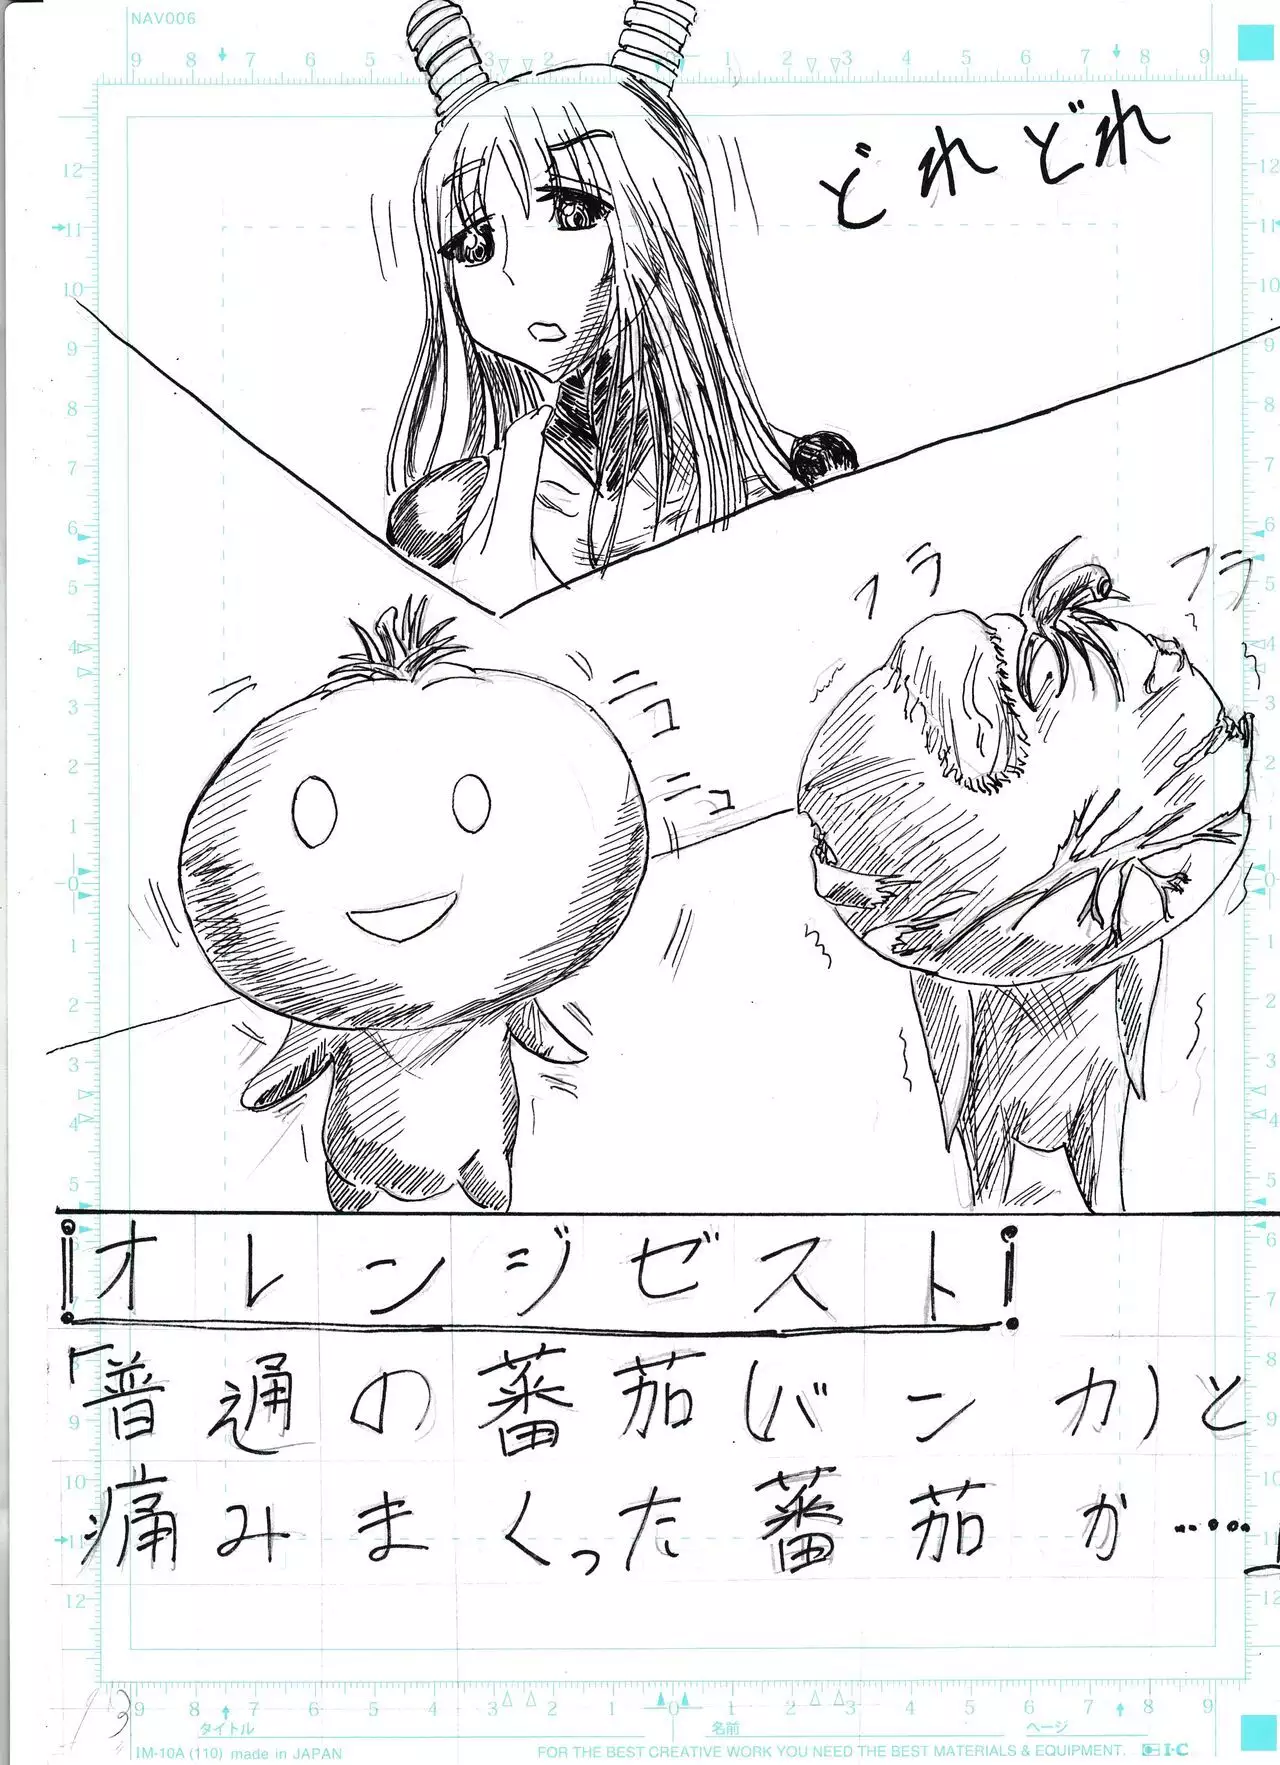 NAV006
どれどれ
フラ
フラ
ニュ
ニュ
¡オレンジゼスト!
「普通の蕃茄(バンカ)と
痛みまくった蕃茄か……」
13
タイトル
名前
ページ
IM-10A (110) made in JAPAN
FOR THE BEST CREATIVE WORK YOU NEED THE BEST MATERIALS & EQUIPMENT.
I·C